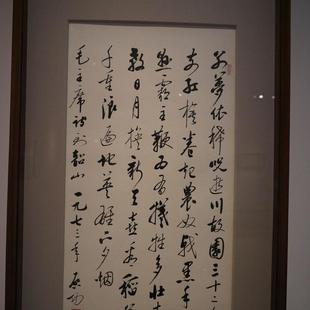 别夢依稀咒逝川故園三十二年
前红旗卷起農奴戟黑手
悬霸主鞭为有犧牲多壮
敢教日月换新天喜看稻
千重浪遍地英雄下夕烟
毛主席詩到韶山 一九七三年 启功